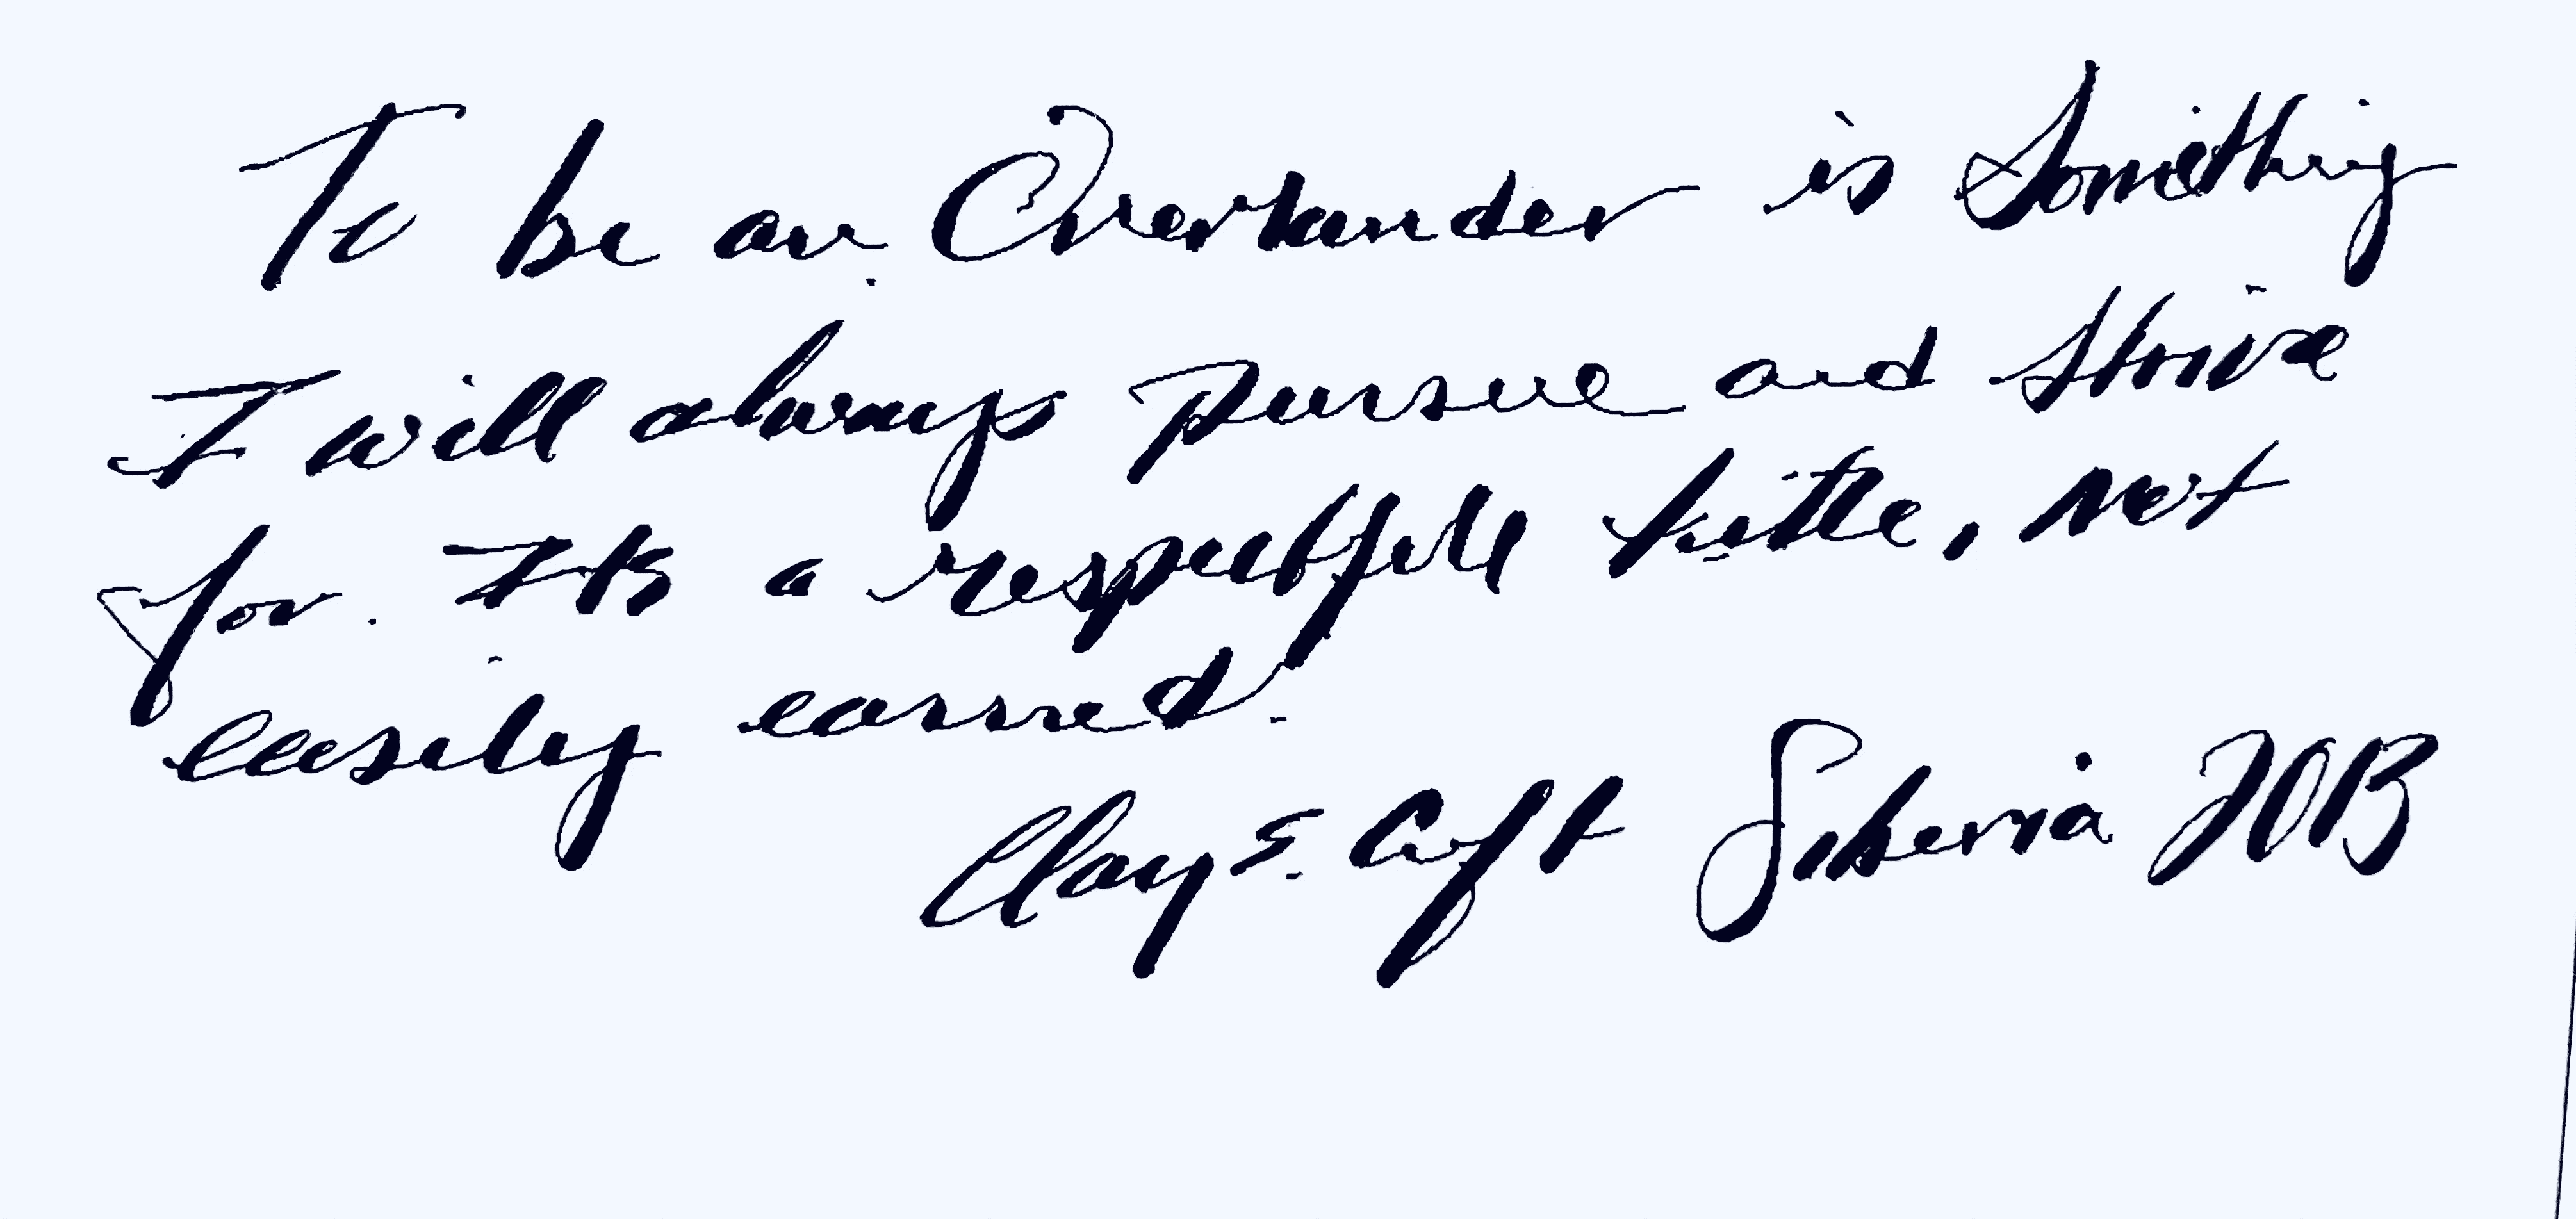 To be an Overlander is Something
I will always pursue and strive
for. Its a respectfull tittle, not
easily earned.
Clay S. Croft Siberia 20B